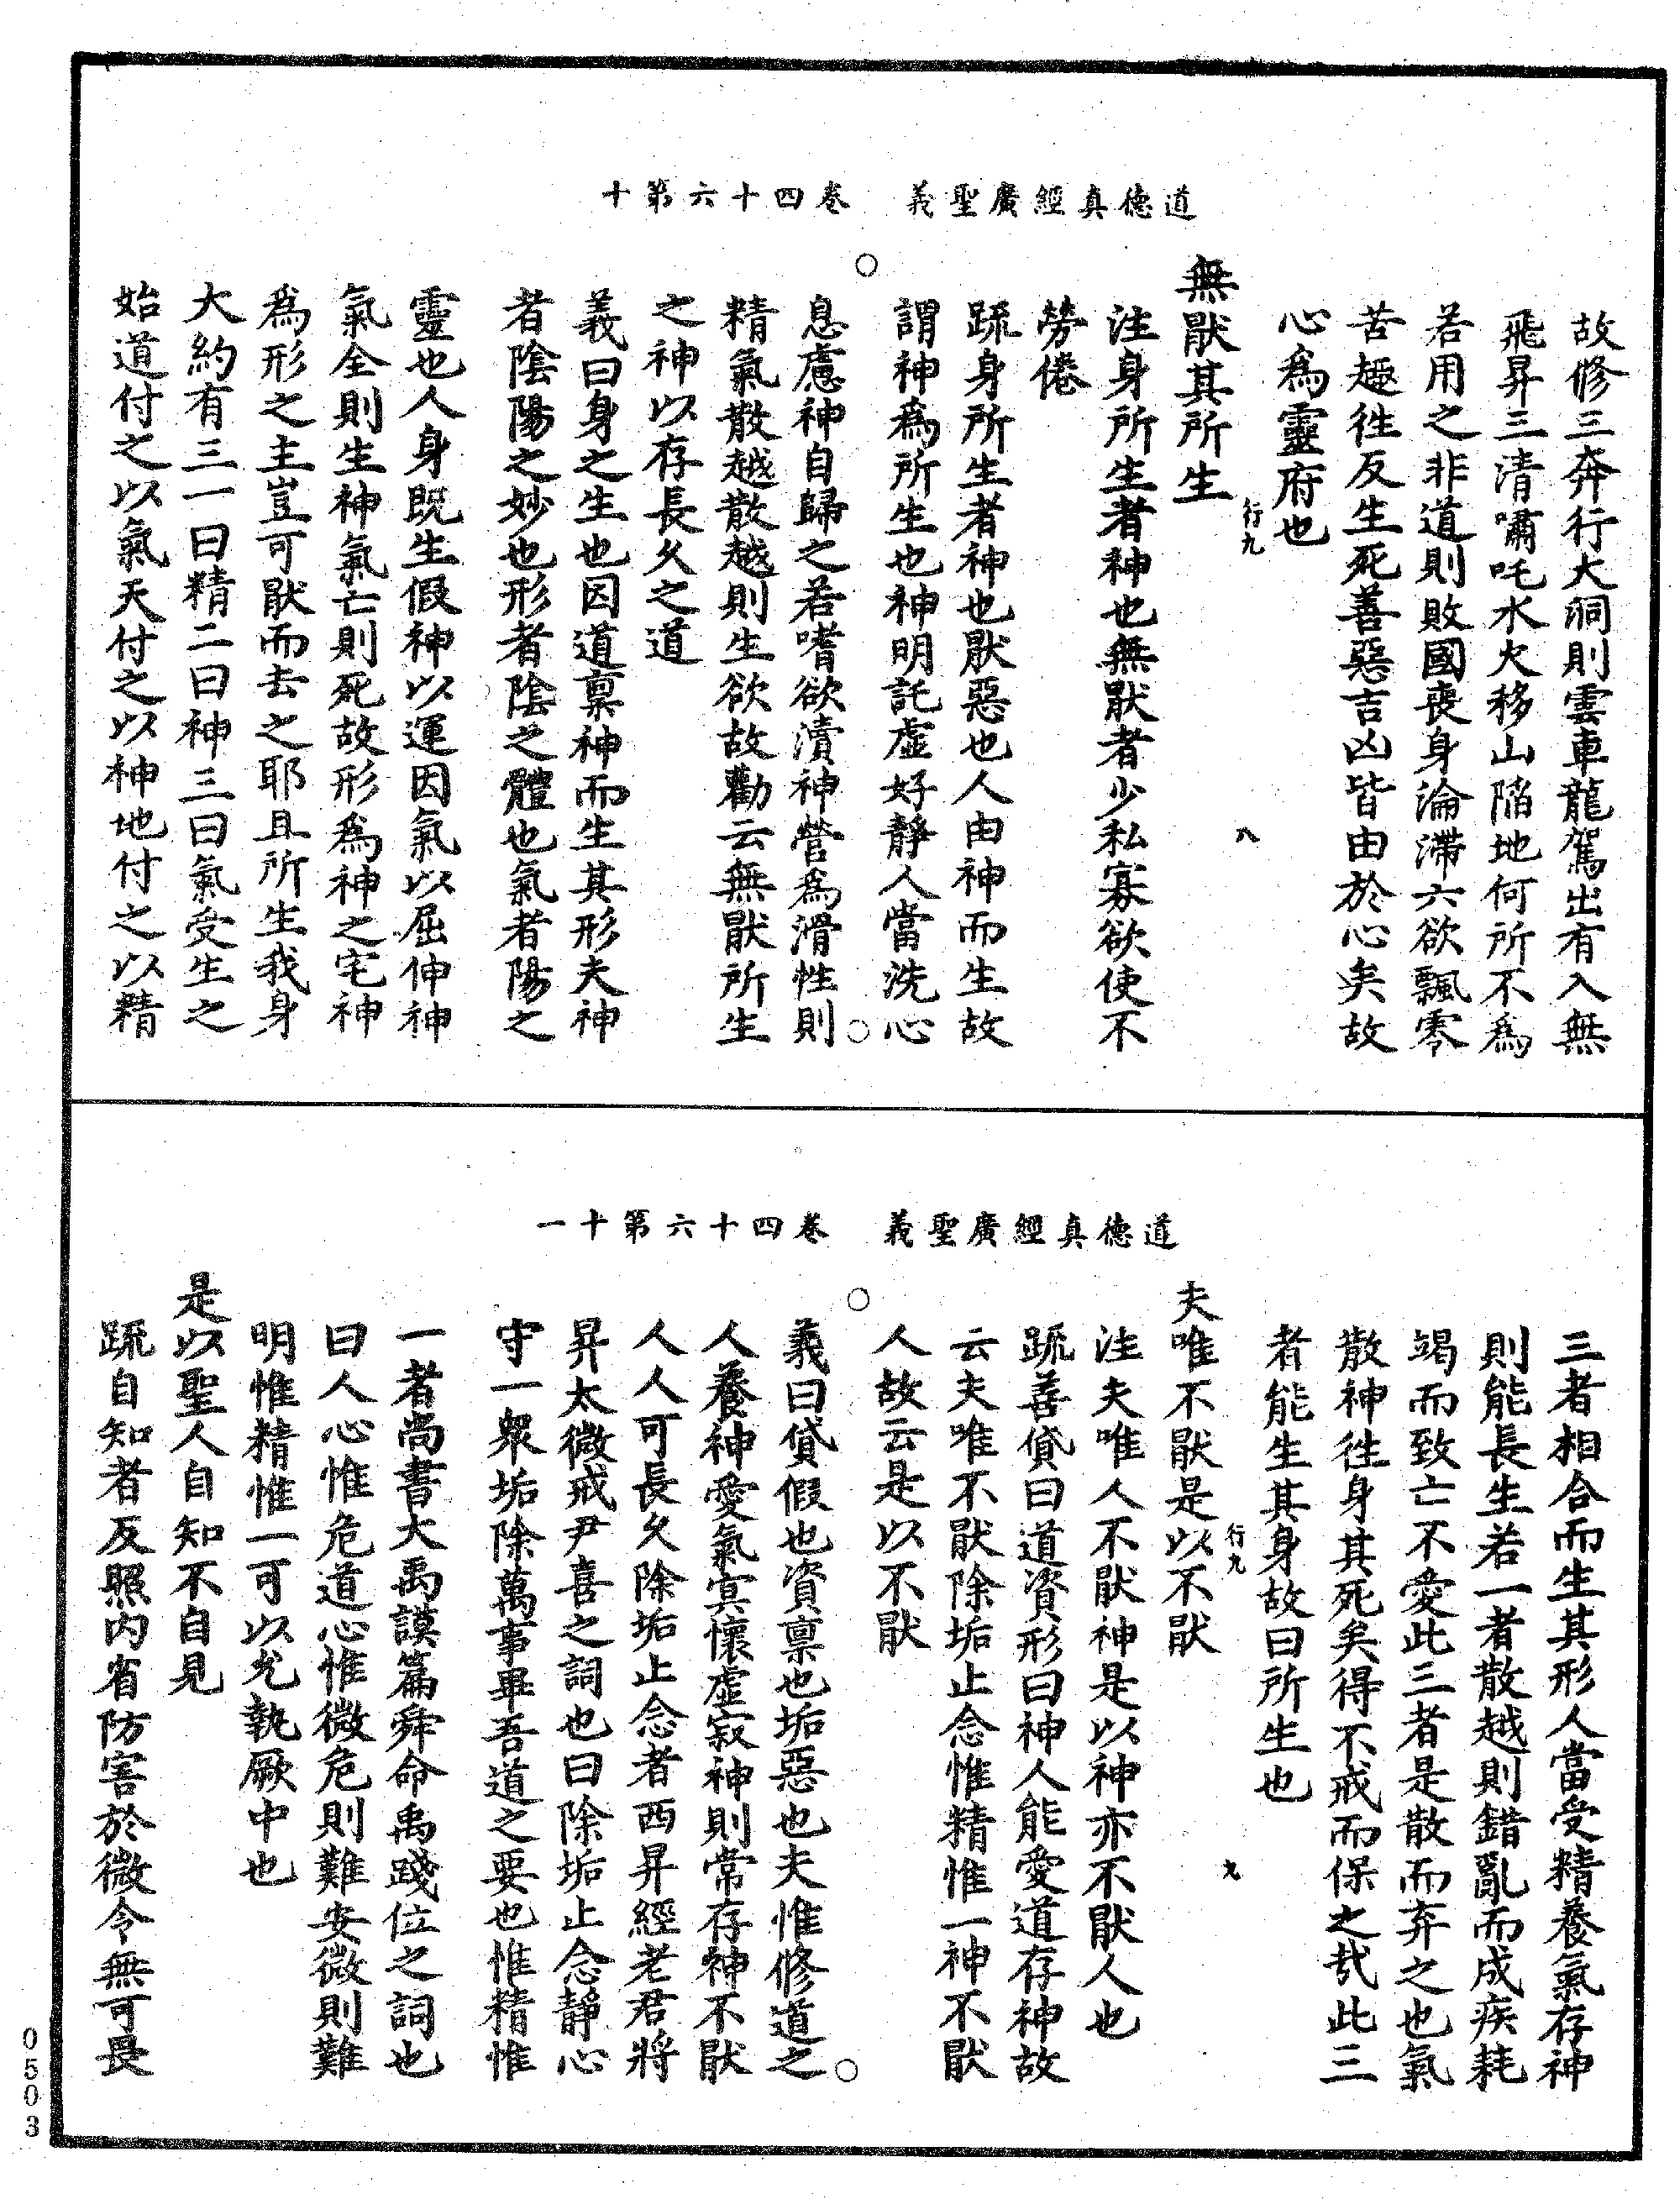 道德真經廣聖義　卷四十六第十
故修三奔行大洞則雲車龍駕出有入無
飛昇三清嘯吒水火移山陷地何所不為
若用之非道則敗國喪身淪滯六欲飄零
苦趣徃反生死善惡吉凶皆由於心矣故
心為靈府也
行九　八
無猒其所生
注身所生者神也無猒者少私寡欲使不
勞倦
疏身所生者神也猒惡也人由神而生故
謂神為所生也神明託虛好靜人當洗心
息慮神自歸之若嗜欲瀆神營為滑性則
精氣散越散越則生欲故勸云無猒所生
之神以存長久之道
義曰身之生也因道稟神而生其形夫神
者陰陽之妙也形者陰之體也氣者陽之
靈也人身既生假神以運因氣以屈伸神
氣全則生神氣亡則死故形為神之宅神
為形之主豈可猒而去之耶且所生我身
大約有三一曰精二曰神三曰氣受生之
始道付之以氣天付之以神地付之以精
道德真經廣聖義　卷四十六第十一
三者相合而生其形人當受精養氣存神
則能長生若一者散越則錯亂而成疾耗
竭而致亡不愛此三者是散而弃之也氣
散神徃身其死矣得不戒而保之哉此三
者能生其身故曰所生也
行九　九
夫唯不猒是以不猒
注夫唯人不猒神是以神亦不猒人也
疏善貸曰道資形曰神人能愛道存神故
云夫唯不猒除垢止念惟精惟一神不猒
人故云是以不猒
義曰貸假也資稟也垢惡也夫惟修道之
人養神愛氣寘懷虛寂神則常存神不猒
人人可長久除垢止念者西昇經老君將
昇太微戒尹喜之詞也曰除垢止念靜心
守一衆垢除萬事畢吾道之要也惟精惟
一者尚書大禹謨篇舜命禹踐位之詞也
曰人心惟危道心惟微危則難安微則難
明惟精惟一可以允執厥中也
是以聖人自知不自見
疏自知者反照內省防害於微令無可畏
0503